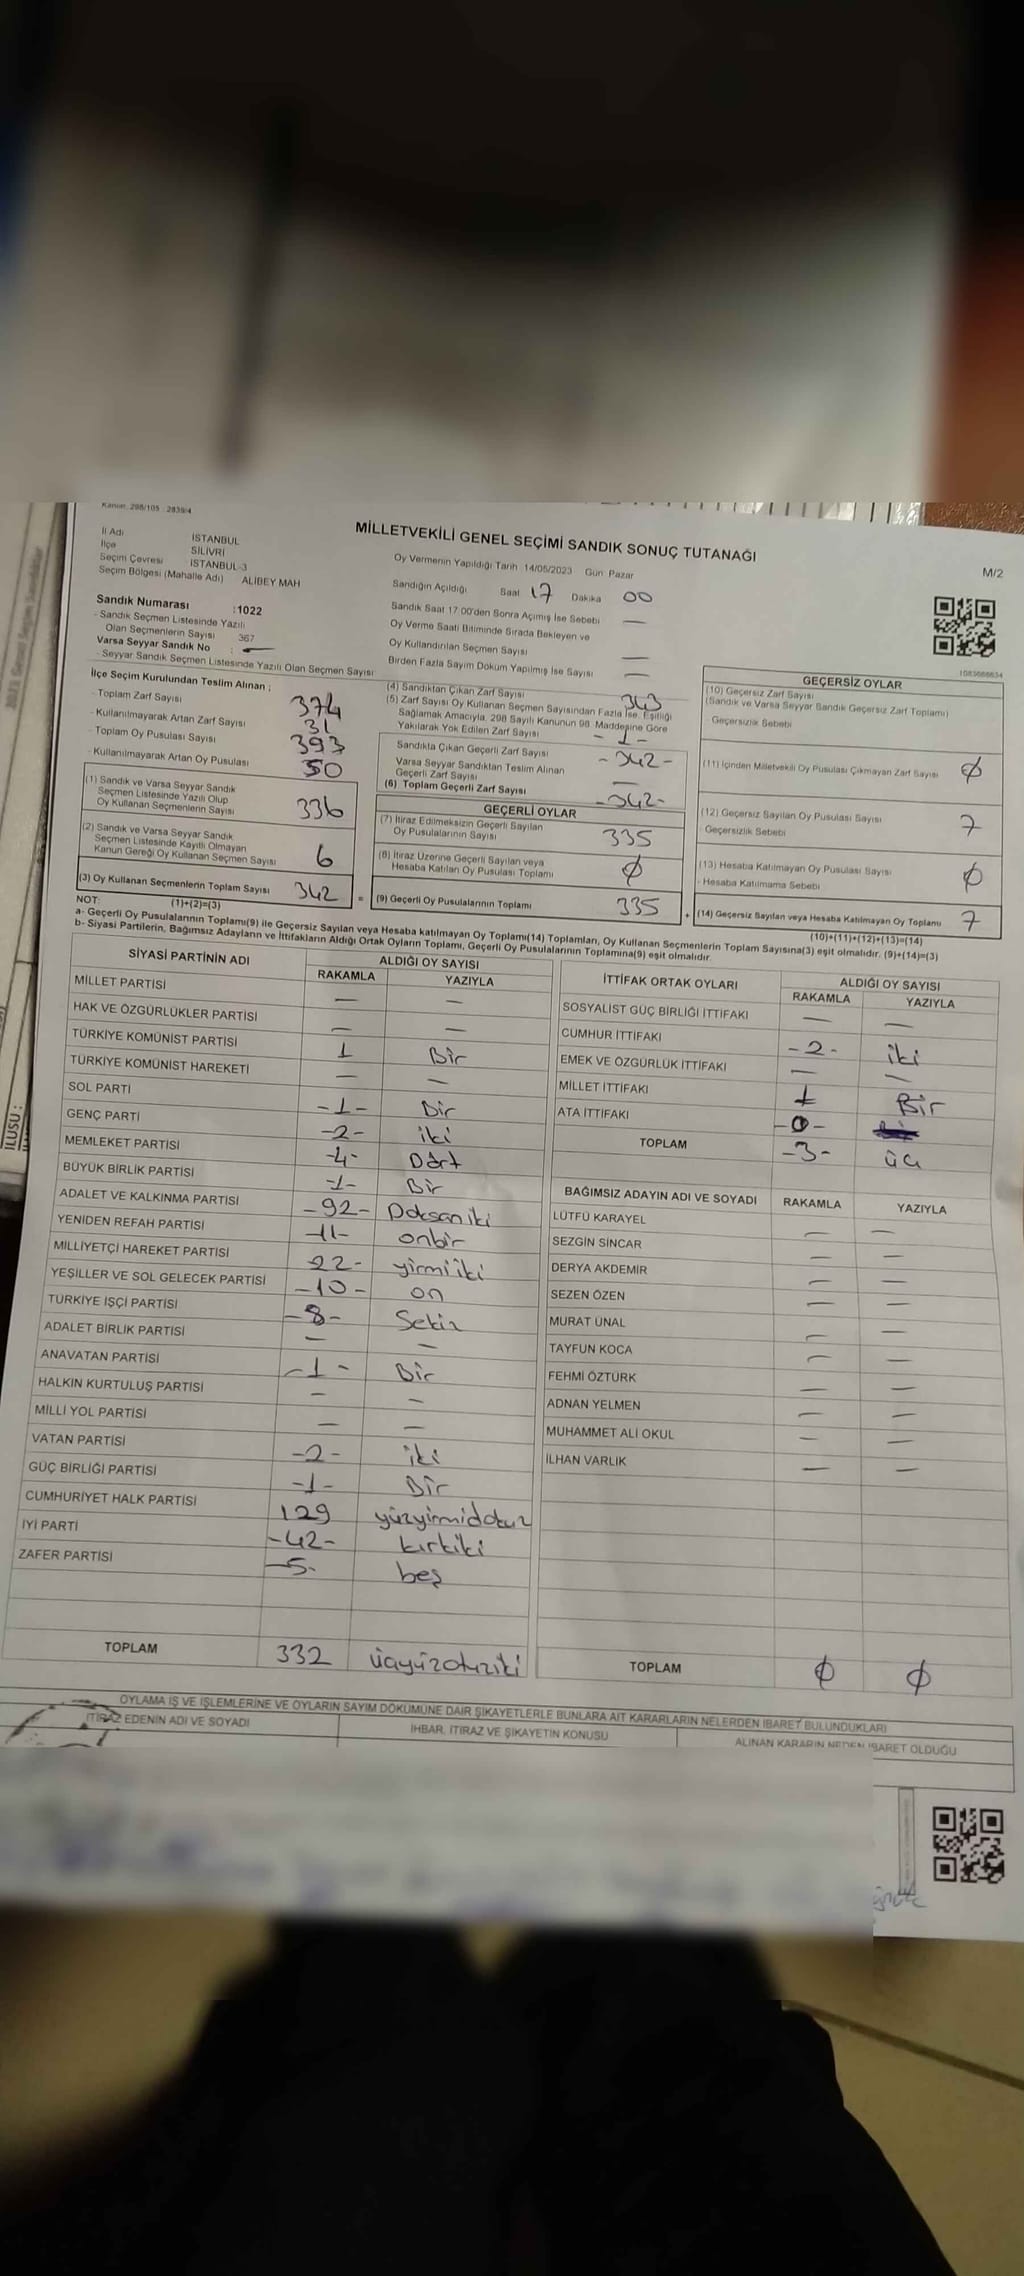 Kanun: 298/105 : 2839/4
MİLLETVEKİLİ GENEL SEÇİMİ SANDIK SONUÇ TUTANAĞI
M/2
İl Adı İSTANBUL
İlçe SİLİVRİ
Seçim Çevresi İSTANBUL-3
Seçim Bölgesi (Mahalle Adı) ALİBEY MAH
Sandık Numarası :1022
- Sandık Seçmen Listesinde Yazılı
Olan Seçmenlerin Sayısı 367
Varsa Seyyar Sandık No : —
- Seyyar Sandık Seçmen Listesinde Yazılı Olan Seçmen Sayısı
Oy Vermenin Yapıldığı Tarih 14/05/2023 Gün Pazar
Sandığın Açıldığı Saat 17 Dakika 00
Sandık Saat 17:00'den Sonra Açımış İse Sebebi —
Oy Verme Saati Bitiminde Sırada Bekleyen ve
Oy Kullandırılan Seçmen Sayısı —
Birden Fazla Sayım Döküm Yapılmış İse Sayısı —
1083666634
İlçe Seçim Kurulundan Teslim Alınan ;
- Toplam Zarf Sayısı 374
- Kullanılmayarak Artan Zarf Sayısı 31
- Toplam Oy Pusulası Sayısı 393
- Kullanılmayarak Artan Oy Pusulası 50
(1) Sandık ve Varsa Seyyar Sandık
Seçmen Listesinde Yazılı Olup
Oy Kullanan Seçmenlerin Sayısı 336
(2) Sandık ve Varsa Seyyar Sandık
Seçmen Listesinde Kayıtlı Olmayan
Kanun Gereği Oy Kullanan Seçmen Sayısı 6
(3) Oy Kullanan Seçmenlerin Toplam Sayısı 342
(4) Sandıktan Çıkan Zarf Sayısı 343
(5) Zarf Sayısı Oy Kullanan Seçmen Sayısından Fazla İse, Eşitliği
Sağlamak Amacıyla, 298 Sayılı Kanunun 98. Maddesine Göre
Yakılarak Yok Edilen Zarf Sayısı -1-
Sandıkta Çıkan Geçerli Zarf Sayısı -342-
Varsa Seyyar Sandıktan Teslim Alınan
Geçerli Zarf Sayısı —
(6) Toplam Geçerli Zarf Sayısı -342-
GEÇERLİ OYLAR
(7) İtiraz Edilmeksizin Geçerli Sayılan
Oy Pusulalarının Sayısı 335
(8) İtiraz Üzerine Geçerli Sayılan veya
Hesaba Katılan Oy Pusulası Toplamı 0
= (9) Geçerli Oy Pusulalarının Toplamı 335
GEÇERSİZ OYLAR
(10) Geçersiz Zarf Sayısı
(Sandık ve Varsa Seyyar Sandık Geçersiz Zarf Toplamı)
Geçersizlik Sebebi
(11) İçinden Milletvekili Oy Pusulası Çıkmayan Zarf Sayısı 0
(12) Geçersiz Sayılan Oy Pusulası Sayısı 7
Geçersizlik Sebebi
(13) Hesaba Katılmayan Oy Pusulası Sayısı 0
- Hesaba Katılmama Sebebi
+ (14) Geçersiz Sayılan veya Hesaba Katılmayan Oy Toplamı 7
NOT: (1)+(2)=(3)
(10)+(11)+(12)+(13)=(14)
a- Geçerli Oy Pusulalarının Toplamı(9) ile Geçersiz Sayılan veya Hesaba katılmayan Oy Toplamı(14) Toplamları, Oy Kullanan Seçmenlerin Toplam Sayısına(3) eşit olmalıdır. (9)+(14)=(3)
b- Siyasi Partilerin, Bağımsız Adayların ve İttifakların Aldığı Ortak Oyların Toplamı, Geçerli Oy Pusulalarının Toplamına(9) eşit olmalıdır.
SİYASİ PARTİNİN ADI ALDIĞI OY SAYISI
RAKAMLA YAZIYLA
MİLLET PARTİSİ — —
HAK VE ÖZGÜRLÜKLER PARTİSİ — —
TÜRKİYE KOMÜNİST PARTİSİ 1 Bir
TÜRKİYE KOMÜNİST HAREKETİ — —
SOL PARTİ -1- Bir
GENÇ PARTİ -2- iki
MEMLEKET PARTİSİ -4- Dört
BÜYÜK BİRLİK PARTİSİ -1- Bir
ADALET VE KALKINMA PARTİSİ -92- Doksaniki
YENİDEN REFAH PARTİSİ -11- onbir
MİLLİYETÇİ HAREKET PARTİSİ -22- yirmiiki
YEŞİLLER VE SOL GELECEK PARTİSİ -10- on
TÜRKİYE İŞÇİ PARTİSİ -8- Sekiz
ADALET BİRLİK PARTİSİ — —
ANAVATAN PARTİSİ -1- Bir
HALKIN KURTULUŞ PARTİSİ — —
MİLLİ YOL PARTİSİ — —
VATAN PARTİSİ -2- iki
GÜÇ BİRLİĞİ PARTİSİ -1- Bir
CUMHURİYET HALK PARTİSİ 129 yüzyirmidokuz
İYİ PARTİ -42- kırkiki
ZAFER PARTİSİ -5- beş
TOPLAM 332 üçyüzotuziki
İTTİFAK ORTAK OYLARI ALDIĞI OY SAYISI
RAKAMLA YAZIYLA
SOSYALİST GÜÇ BİRLİĞİ İTTİFAKI — —
CUMHUR İTTİFAKI -2- iki
EMEK VE ÖZGÜRLÜK İTTİFAKI — —
MİLLET İTTİFAKI 1 Bir
ATA İTTİFAKI -0-
TOPLAM -3- üç
BAĞIMSIZ ADAYIN ADI VE SOYADI RAKAMLA YAZIYLA
LÜTFÜ KARAYEL — —
SEZGİN SİNCAR — —
DERYA AKDEMİR — —
SEZEN ÖZEN — —
MURAT ÜNAL — —
TAYFUN KOCA — —
FEHMİ ÖZTÜRK — —
ADNAN YELMEN — —
MUHAMMET ALİ OKUL — —
İLHAN VARLIK — —
TOPLAM 0 0
OYLAMA İŞ VE İŞLEMLERİNE VE OYLARIN SAYIM DÖKÜMÜNE DAİR ŞİKAYETLERLE BUNLARA AİT KARARLARIN NELERDEN İBARET BULUNDUKLARI
İTİRAZ EDENİN ADI VE SOYADI İHBAR, İTİRAZ VE ŞİKAYETİN KONUSU ALINAN KARARIN NEDEN İBARET OLDUĞU